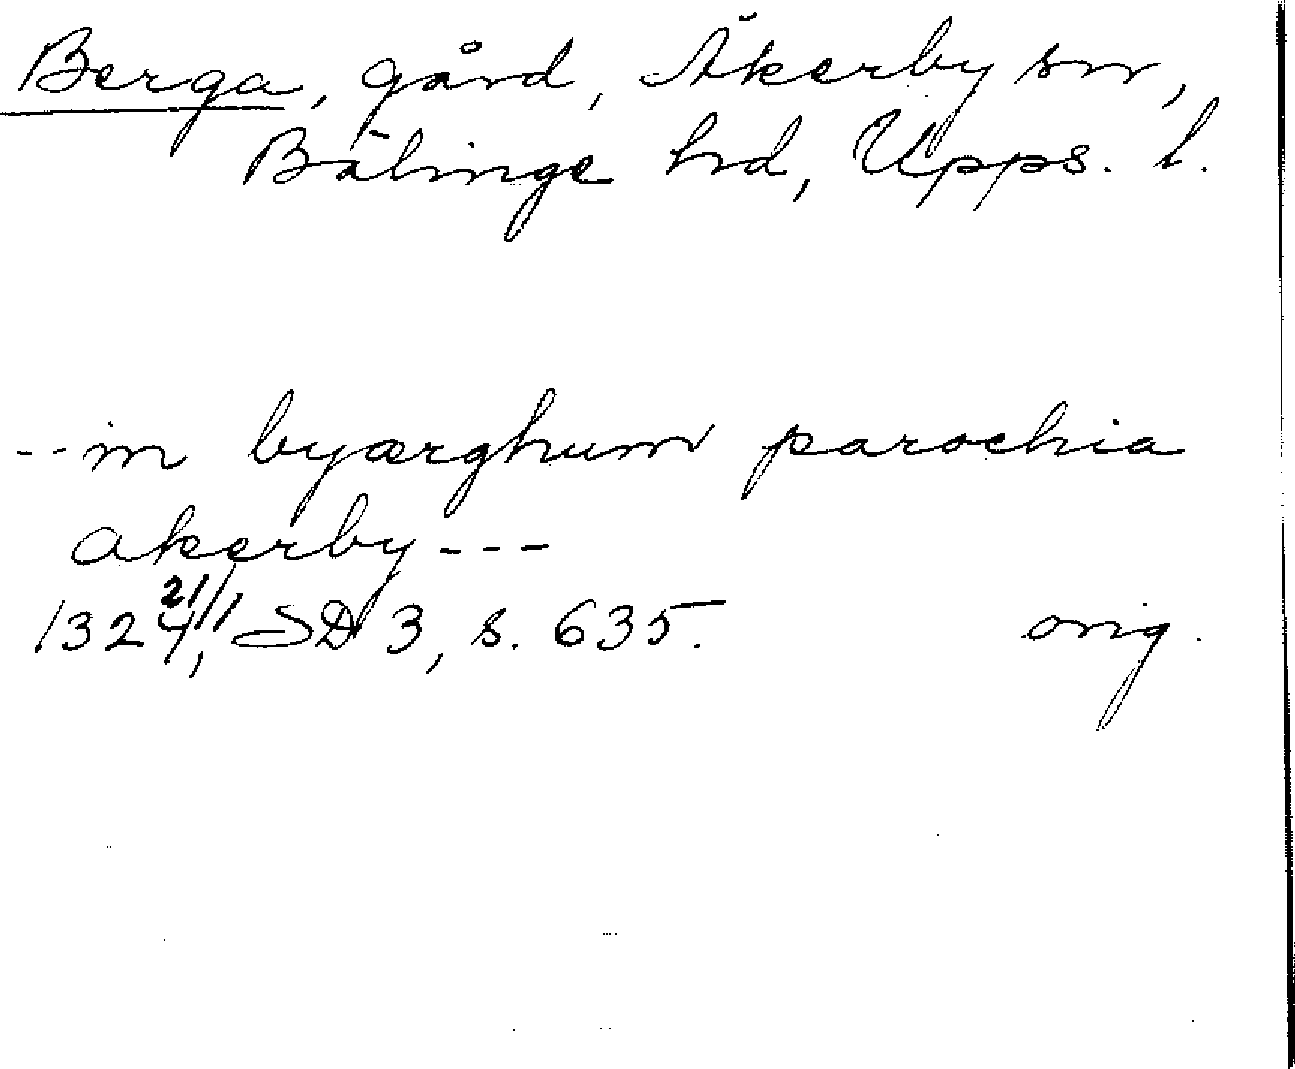 Berga, gård, Åkerby sn,
Bälinge hd, Upps. l.
-- in byærghum parochia
akerby ---
1324 21/1, SD 3, s. 635. orig.